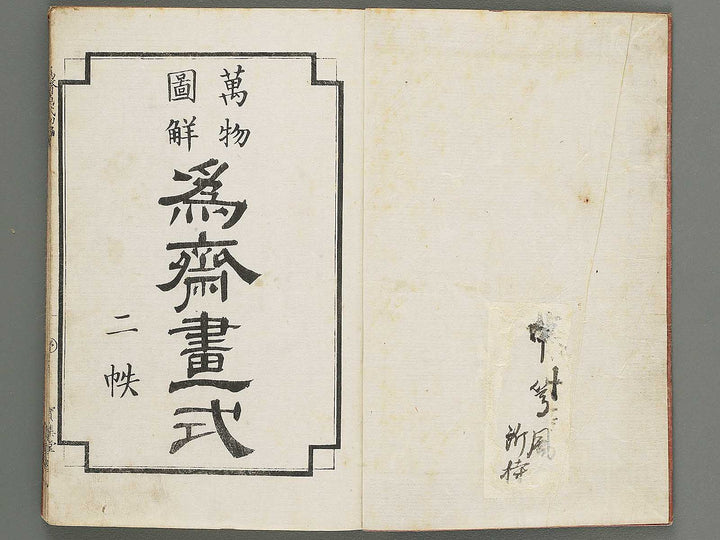 萬物
圖解
爲齋畫式
二帙
所持